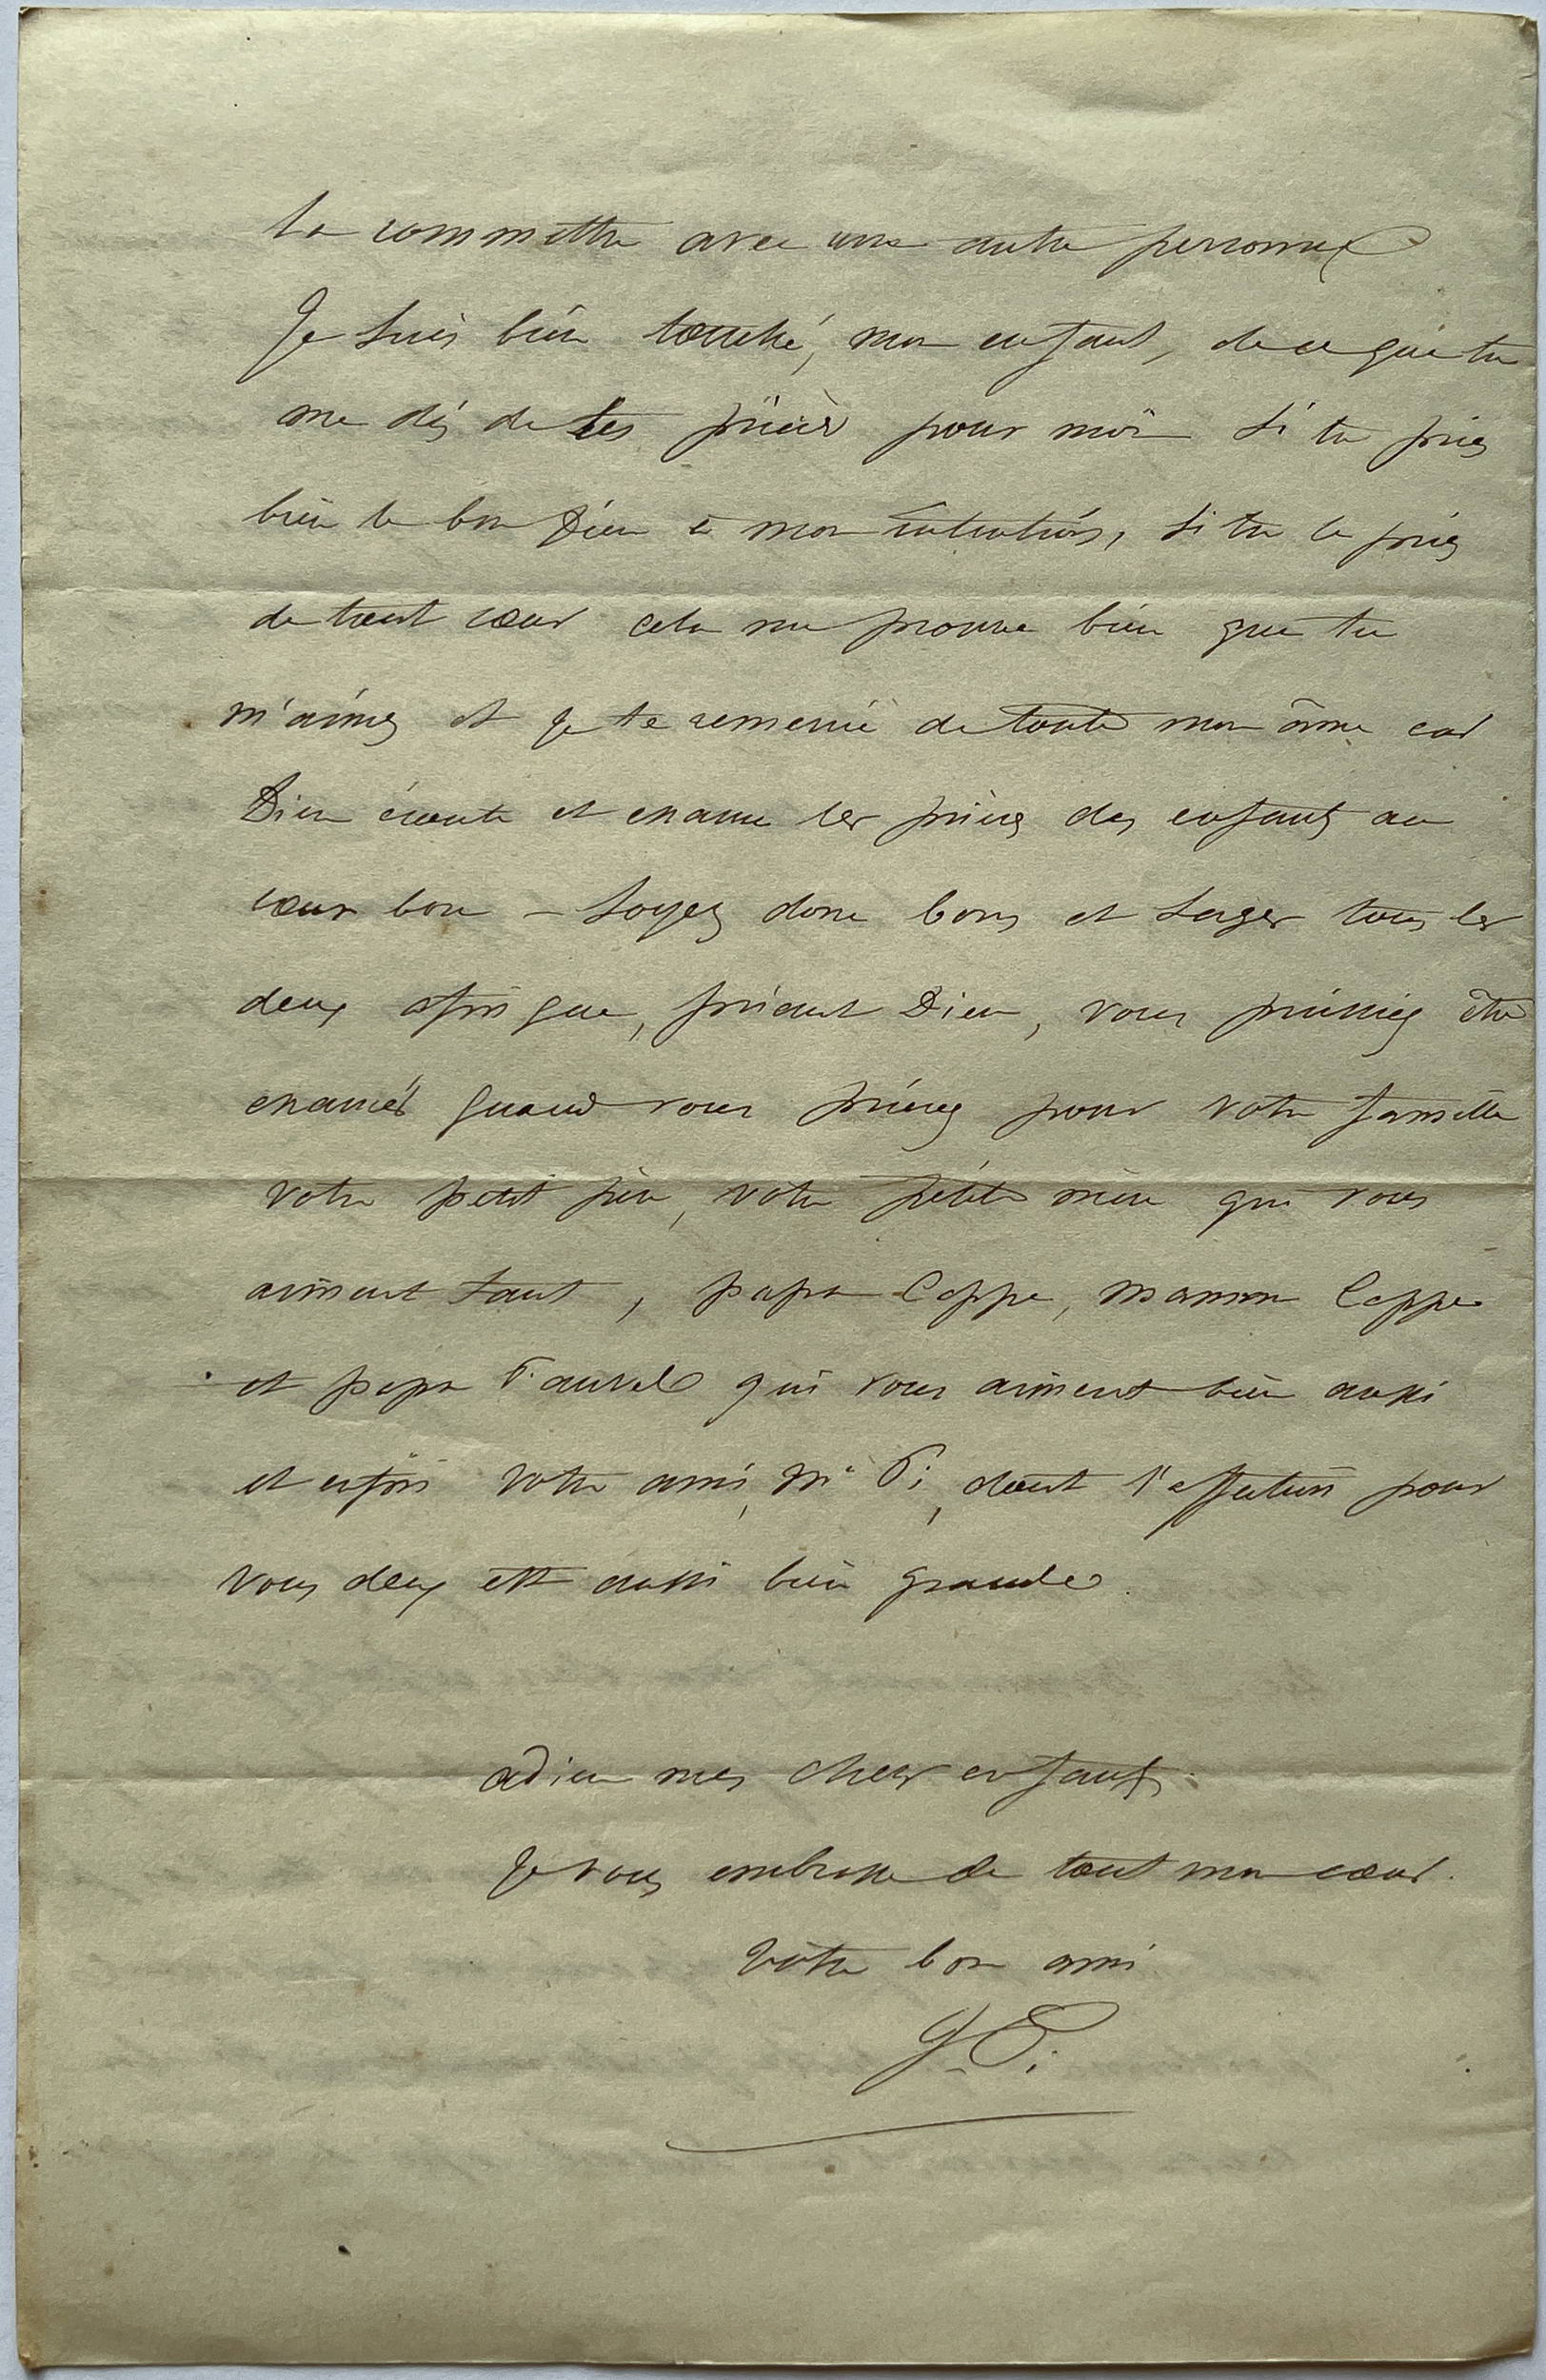 la commettre avec une autre personne
Je suis bien touché, mon enfant, de ce que tu
me dis de tes prières pour moi si tu pries
bien le bon Dieu à mon intention, si tu le pries
de tout cœur cela me prouve bien que tu
m'aimes et je te remercie de toute mon âme car
Dieu écoute et exauce les prières des enfants au
cœur bon – Soyez donc bons et sages tous les
deux afin que, priant Dieu, vous puissiez être
exaucés quand vous prierez pour votre famille
votre petit père, votre petite mère qui vous
aiment tant, papa Coppe, maman Coppe
et papa qui vous aiment bien aussi
et enfin votre ami, Mr Pi, dont l'affection pour
vous deux est aussi bien grande.
adieu mes chers enfants.
Je vous embrasse de tout mon cœur.
Votre bon ami